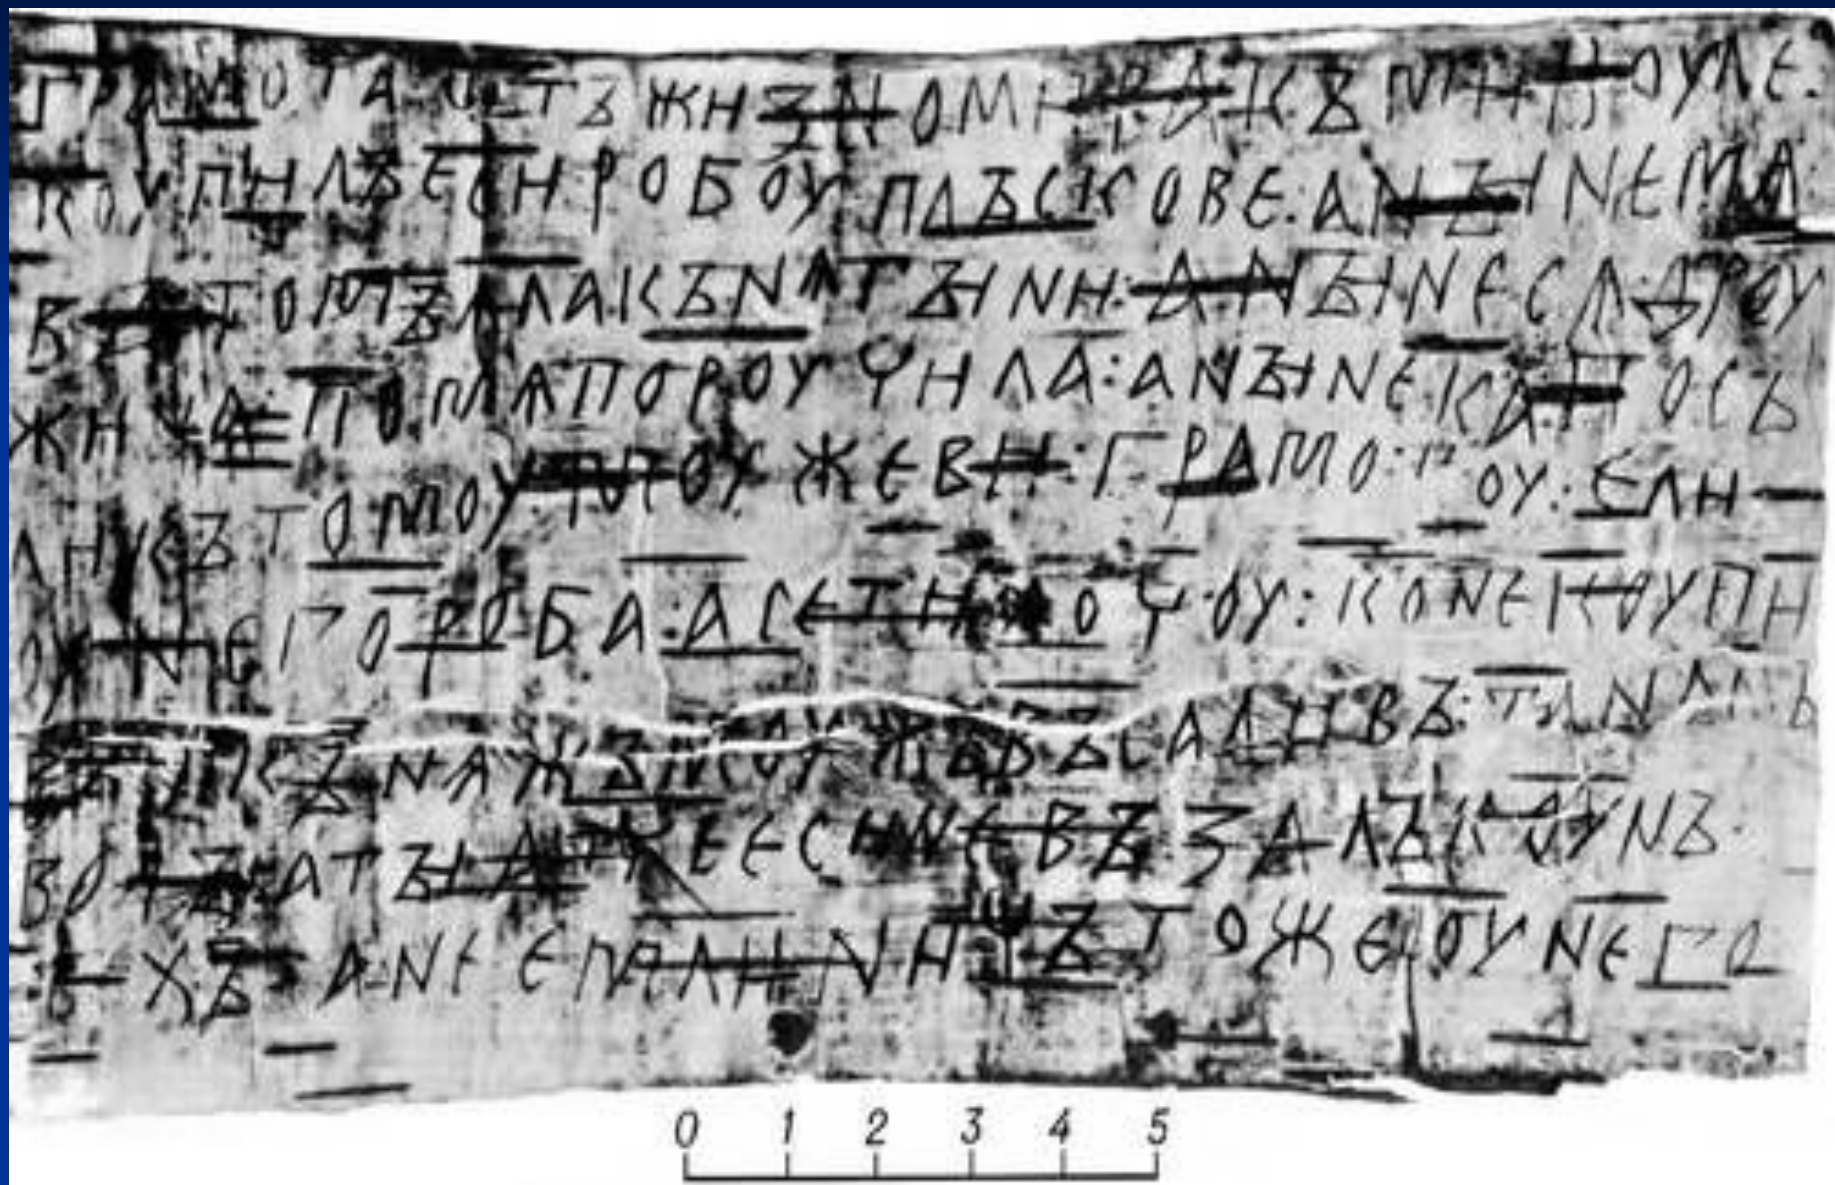 ГРАМОТА ОТЪ ЖИЗНОМИРА КЪ МИКОУЛЕ:
КОУПИЛЪ ЕСИ РОБОУ ПЛЪСКОВЕ: А НЫНЕ МѦ
ВЪ ТОМЪ ѦЛА КЪНѦГЫНИ: А НЫНЕ СѦ ДРОУ
ЖИНА ПО МѦ ПОРОУЧИЛА: А НЫНЕ КА ПОСЪ
ЛИ КЪ ТОМОУ МОУЖЕВИ: ГРАМОТОУ: Е ЛИ
ОУ НЕГО РОБА: А СЕ ТИ ХОЧОУ: КОНЕ КОУПИ
ВЪ И КЪНѦЖЪ МОУЖЪ ВЪСАДИВЪ: ТА НА СЪ
ВОДЫ А ТЫ АТЧЕ ЕСИ НЕ ВЪЗАЛЪ КОУНЪ
ТѢХЪ А НЕ ЕМЛИ НИЧЪТО ЖЕ ОУ НЕГО
0 1 2 3 4 5